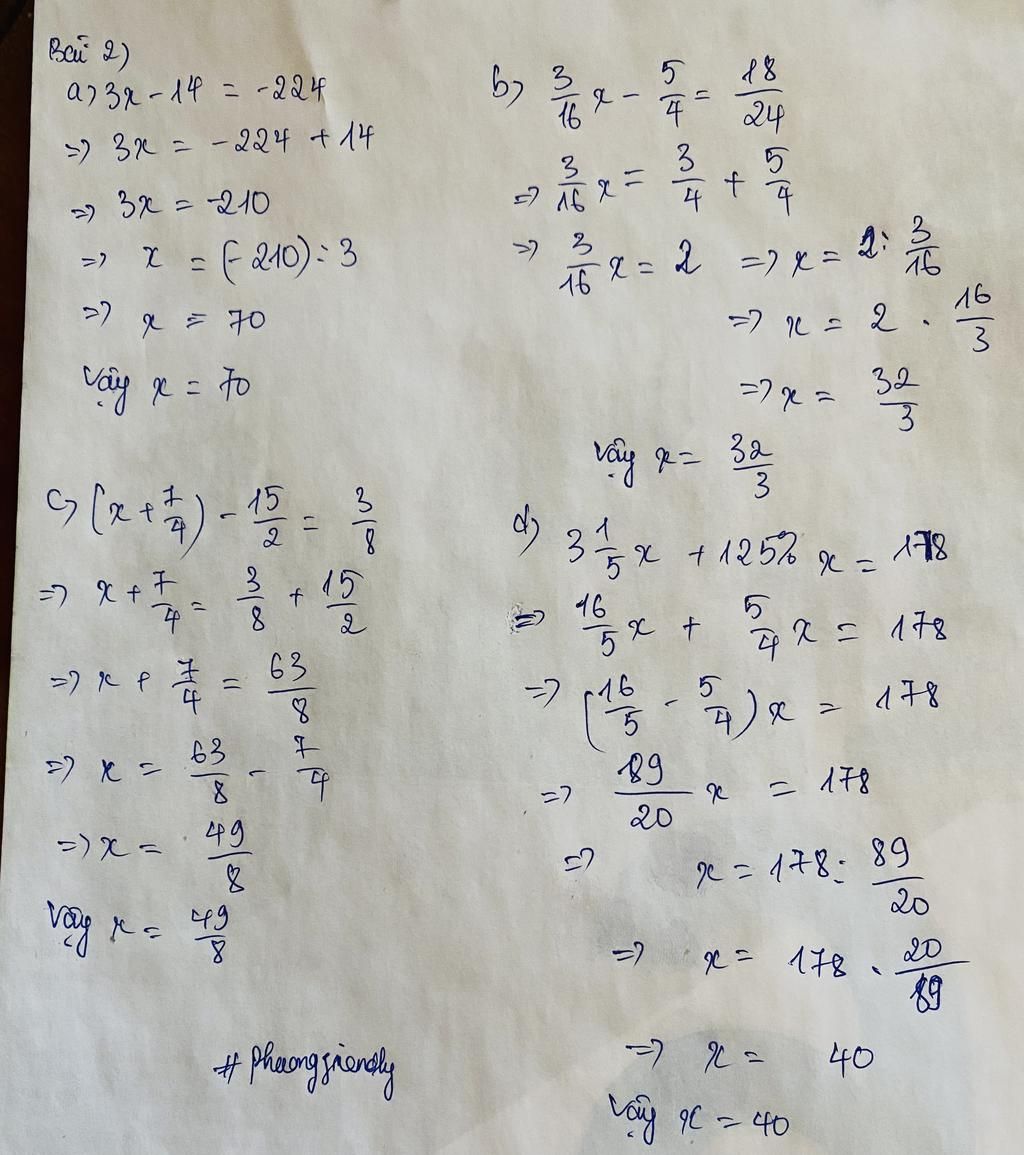 Bài 2)
a) 3x - 14 = -224
=> 3x = -224 + 14
=> 3x = -210
=> x = (-210) : 3
=> x = 70
Vậy x = 70
b) 3/16 x - 5/4 = 18/24
=> 3/16 x = 3/4 + 5/4
=> 3/16 x = 2 => x = 2 : 3/16
=> x = 2 . 16/3
=> x = 32/3
Vậy x = 32/3
c) (x + 7/4) - 15/2 = 3/8
=> x + 7/4 = 3/8 + 15/2
=> x + 7/4 = 63/8
=> x = 63/8 - 7/4
=> x = 49/8
Vậy x = 49/8
d) 3 1/5 x + 125% x = 178
=> 16/5 x + 5/4 x = 178
=> (16/5 - 5/4) x = 178
=> 89/20 x = 178
=> x = 178 : 89/20
=> x = 178 . 20/89
=> x = 40
Vậy x = 40
# phuongfriendly